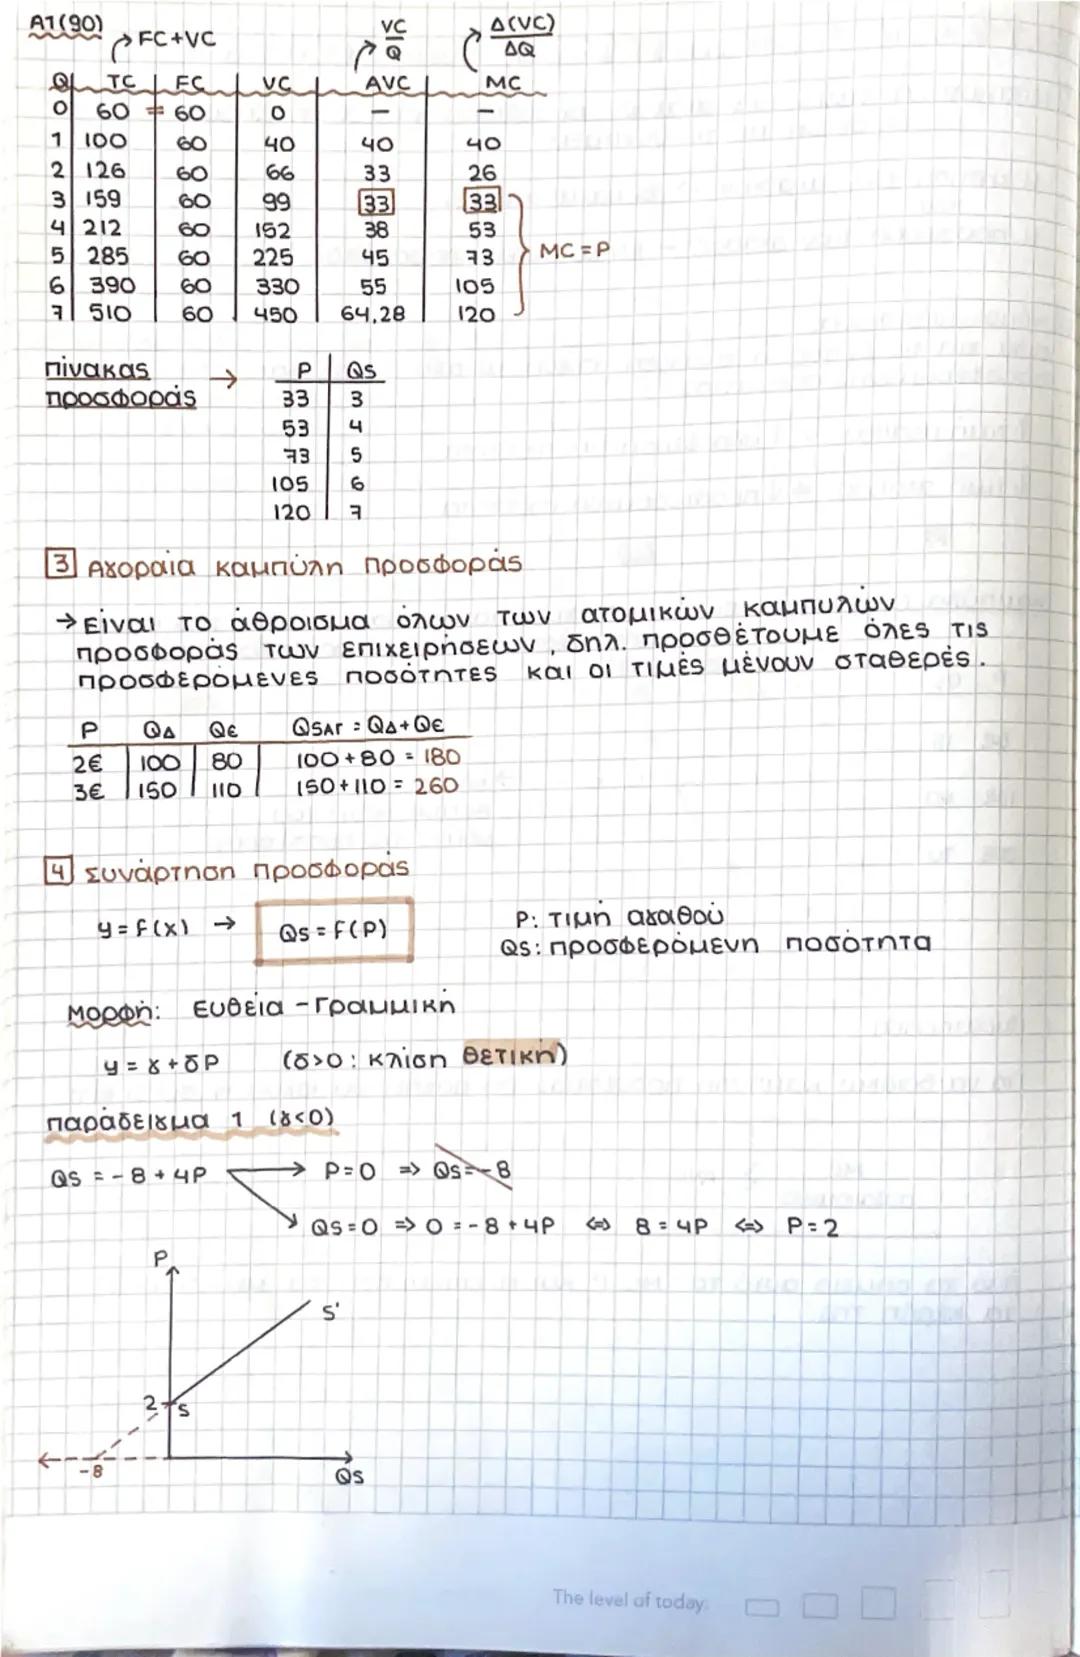 Α1(90)
→FC+VC
VC/Q
Δ(VC)/ΔQ
Q TC FC VC AVC MC
0 60 = 60 0 – –
1 100 60 40 40 40
2 126 60 66 33 26
3 159 60 99 33 33
4 212 60 152 38 53
5 285 60 225 45 73
6 390 60 330 55 105
7 510 60 450 64,28 120
MC = P
πίνακας
προσφοράς →
P Qs
33 3
53 4
73 5
105 6
120 7
3 Αγοραία καμπύλη προσφοράς
→ Είναι το άθροισμα όλων των ατομικών καμπυλών
προσφοράς των επιχειρήσεων, δηλ. προσθέτουμε όλες τις
προσφερόμενες ποσότητες και οι τιμές μένουν σταθερές.
P QΔ Qε QSΑΓ = QΔ+Qε
2€ 100 80 100+80 = 180
3€ 150 110 150+110 = 260
4 Συνάρτηση προσφοράς
y = f(x) → Qs = F(P)
P: τιμή αγαθού
Qs: προσφερόμενη ποσότητα
Μορφή: Ευθεία - Γραμμική
y = γ + δP (δ>0: κλίση θετική)
παράδειγμα 1 (γ<0)
Qs = -8 + 4P → P=0 => Qs=-8
Qs=0 => 0 = -8 + 4P <=> 8 = 4P <=> P=2
P
S'
2
S
-8
Qs
The level of today: